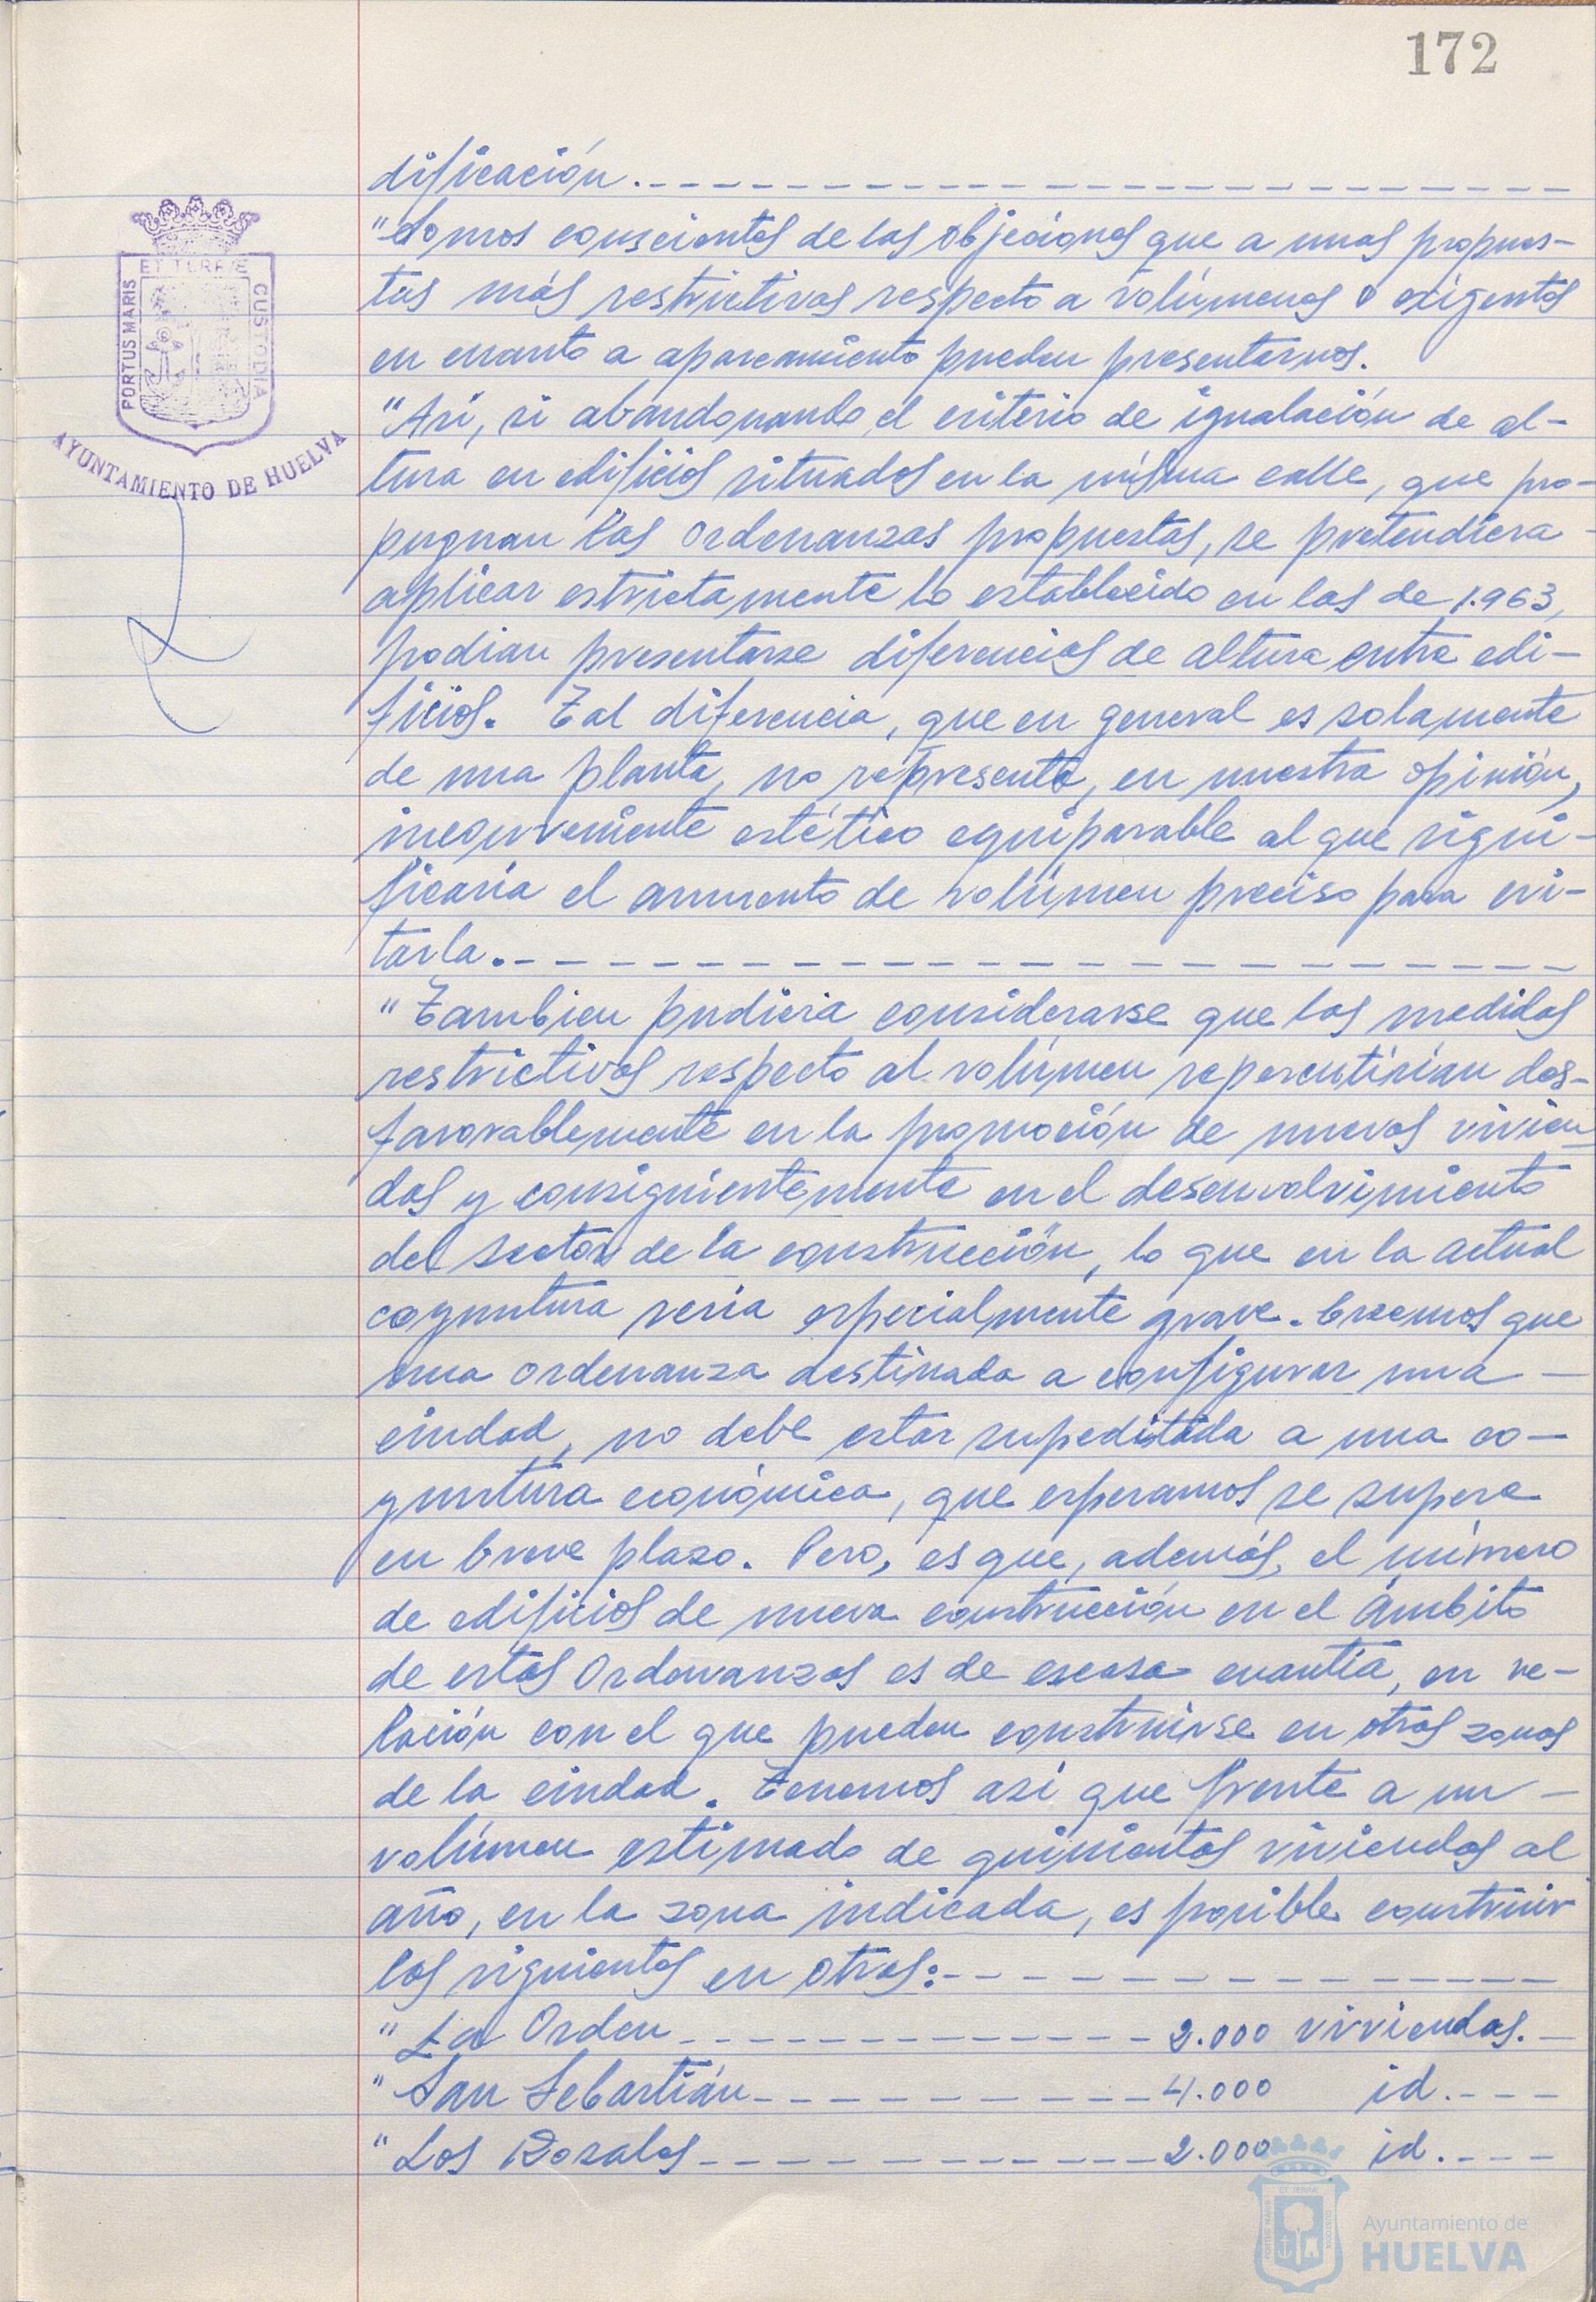 172
dificación.
"Somos conscientes de las objeciones que a unas propues-
tas más restrictivas respecto a volúmenes o exigentes
en cuanto a aparcamiento pueden presentarnos.
"Así, si abandonando el criterio de igualación de al-
tura en edificios situados en la misma calle, que pro-
pugnan las Ordenanzas propuestas, se pretendiera
aplicar estrictamente lo establecido en las de 1.963,
podian presentarse diferencias de altura entre edi-
ficios. Tal diferencia, que en general es solamente
de una planta, no representa, en nuestra opinión,
inconveniente estético equiparable al que signi-
ficaría el aumento de volúmen preciso para evi-
tarla.
"Tambien pudiera considerarse que las medidas
restrictivas respecto al volúmen repercutirían des-
favorablemente en la promoción de nuevas vivien-
das y consiguientemente en el desenvolvimiento
del sector de la construcción, lo que en la actual
coyuntura sería especialmente grave. Creemos que
una ordenanza destinada a configurar una
ciudad, no debe estar supeditada a una co-
yuntura económica, que esperamos se supere
en breve plazo. Pero, es que, además, el número
de edificios de nueva construcción en el ámbito
de estas Ordenanzas es de escasa cuantía, en re-
lación con el que pueden construirse en otras zonas
de la ciudad. Tenemos así que frente a un
volúmen estimado de quinientas viviendas al
año, en la zona indicada, es posible construir
las siguientes en otras:
"La Orden 2.000 viviendas.
"San Sebastián 4.000 id.
"Los Rosales 2.000 id.
ET TERRAE
PORTUS MARIS
CUSTODIA
AYUNTAMIENTO DE HUELVA
Ayuntamiento de
HUELVA